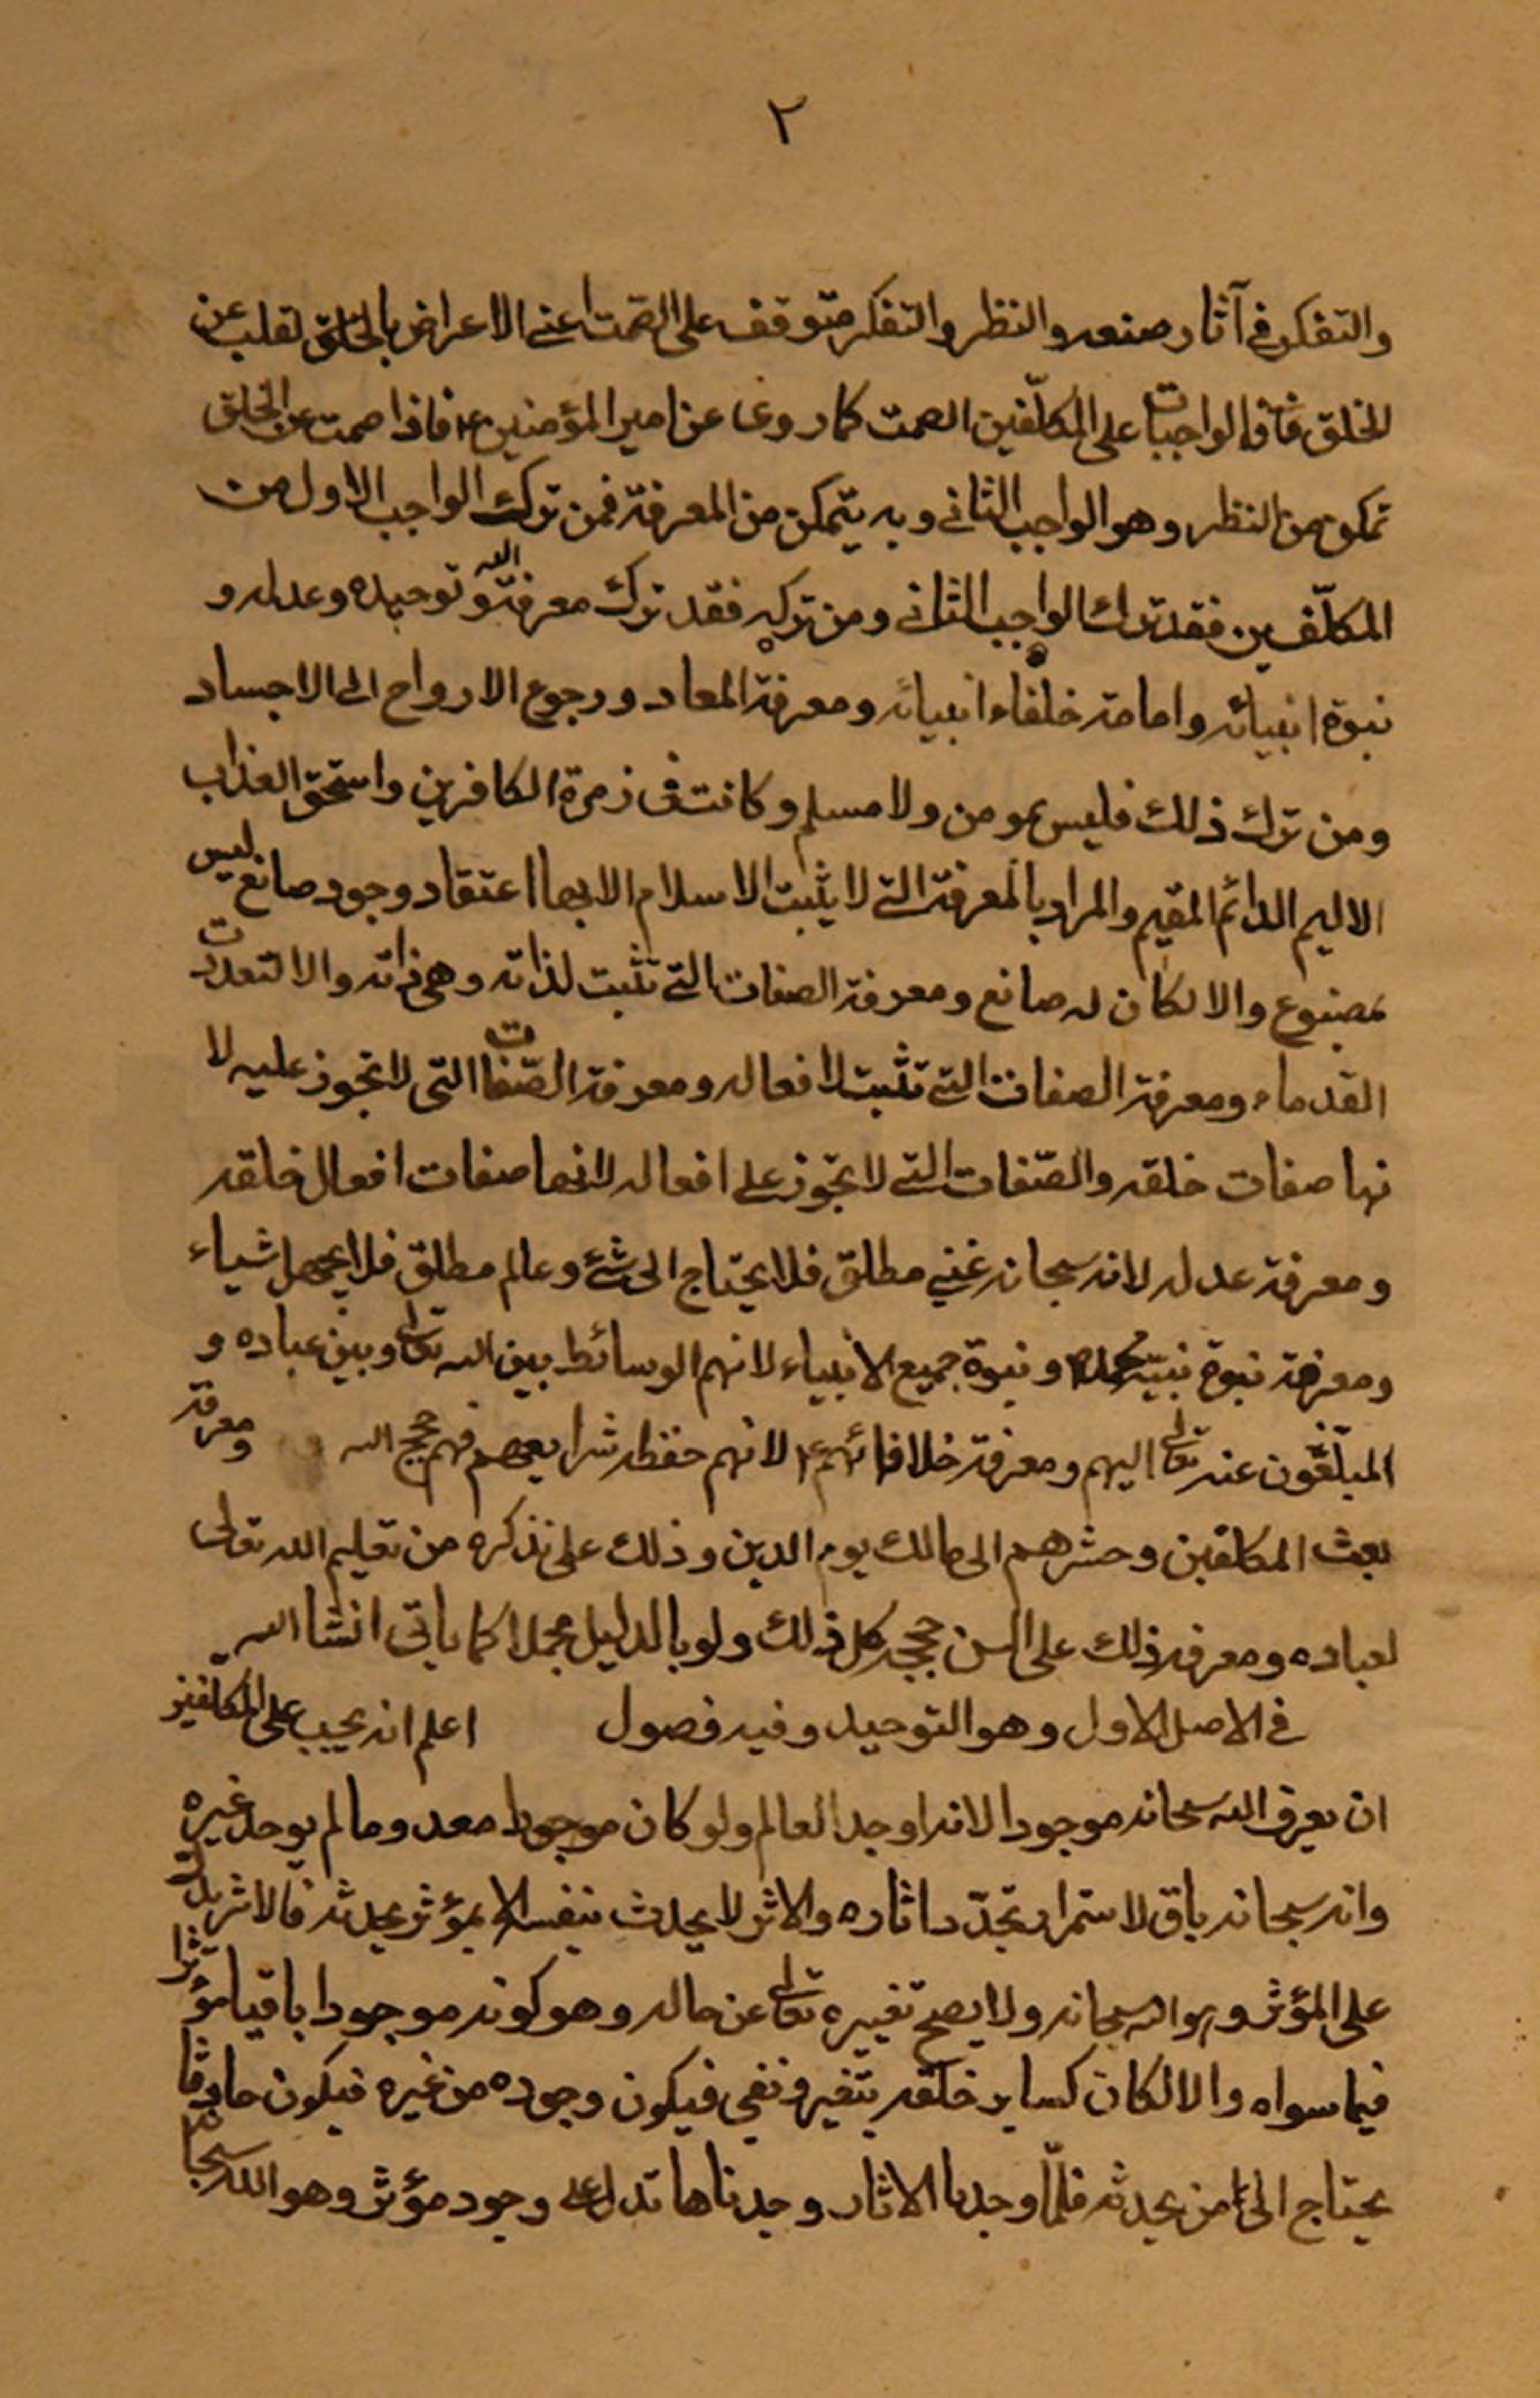 ٢
والتفكر في آثار صنعه والنظر والتفكر متوقف على الصمت اعني الاعراض بالقلب عن
الخلق الواجبات على المكلّفين الصمت كما روى عن امير المؤمنين ع فاذا صمت عن الخلق
تمكن من النظر وهو الواجب الثاني وبه يتمكن من المعرفة فمن ترك الواجب الاول من
المكلّفين فقد ترك الواجب الثاني ومن تركه فقد ترك معرفة الله وتوحيده وعدله و
نبوة انبيائه وامامة خلفاء انبيائه ومعرفة المعاد ورجوع الارواح الى الاجساد
ومن ترك ذلك فليس بمومن ولا مسلم وكانت في زمرة الكافرين واستحق العذاب
الاليم الدائم المقيم والمراد بالمعرفة التي لا يثبت الاسلام الا بها اعتقاد وجود صانع ليس
بمصنوع والا لكان له صانع ومعرفة الصفات التي تثبت لذاته وهي ذاته والا لتعددت
القدماء ومعرفة الصفات التي تثبت لافعاله ومعرفة الصّفات التي لا تجوز عليه لا
نها صفات خلقه والصّفات التي لا تجوز على افعاله لانها صفات افعال خلقه
ومعرفة عدله لانه سبحانه غني مطلق فلا يحتاج الى شئ وعالم مطلق فلا يجهل شياء
ومعرفة نبوة نبيّه محمد ص ونبوة جميع الانبياء لانهم الوسائط بين الله تعالى وبين عباده و
المبلّغون عنه تعالى اليهم ومعرفة خلافائهم ع لانهم حفظه شرايعهم فهم حجج الله ومعرفة
بعث المكلفين وحشرهم الى مالك يوم الدين وذلك على نذكره من تعليم الله تعالى
لعباده ومعرفه ذلك على السن حججه كل ذلك ولو بالدليل مجملا كما ياتى انشا الله
في الاصل الاول وهو التوحيد وفيه فصول اعلم انه يجب على المكلفين
ان يعرف الله سبحانه موجودا لانه اوجد العالم ولو كان معدوما لم يوجد غيره
وانه سبحانه باق لاستمرار تجدّد اثاره والاثر لا يحدث بنفسه الا بمؤثر يحدثه فالاثر يدل
على المؤثر وهو الله سبحانه ولا يصح تغييره تعالى عن حاله وهو كونه موجودا باقيا مؤثرا
فيما سواه والا لكان كساير خلقه يتغير ونفى فيكون وجوده من غيره فيكون حادثا
يحتاج الى من يحدثه فلمّا وجدنا الاثار وجدناها تدل على وجود مؤثر وهو الله سبحانه